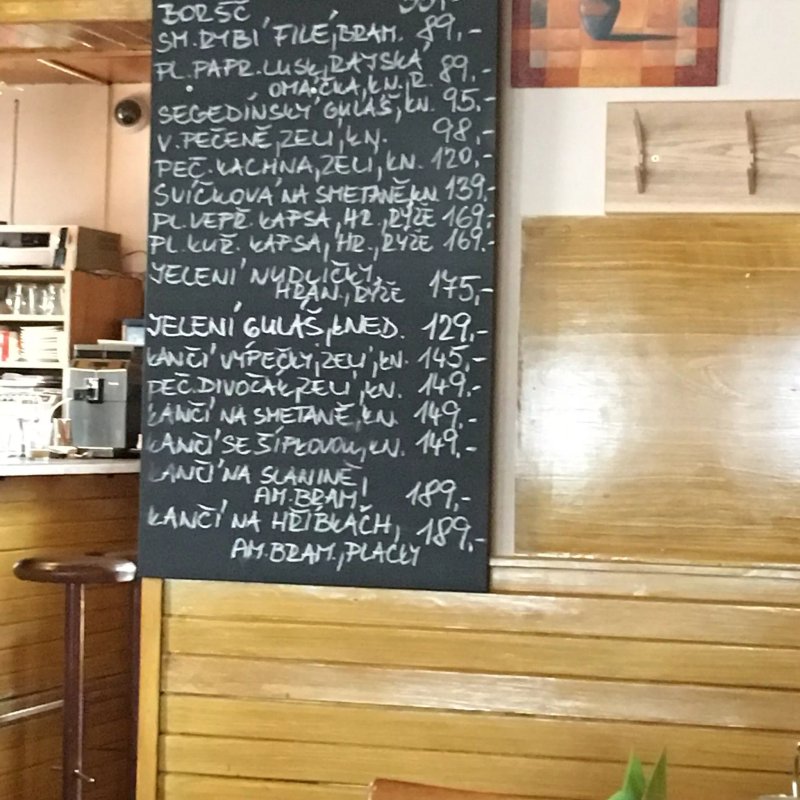 BORŠČ
SM. RYBÍ FILÉ, BRAM. 89,-
PL. PAPR. LUSK, RAJSKÁ
OMÁČKA, KN., R. 89,-
SEGEDÍNSKÝ GULÁŠ, KN. 95,-
V. PEČENĚ, ZELÍ, KN. 98,-
PEČ. KACHNA, ZELÍ, KN. 120,-
SVÍČKOVÁ NA SMETANĚ, KN. 139,-
PL. VEPŘ. KAPSA, HR., RÝŽE 169,-
PL. KUŘ. KAPSA, HR., RÝŽE 169,-
JELENÍ NUDLIČKY,
HRAN., RÝŽE 175,-
JELENÍ GULÁŠ, KNED. 129,-
KANČÍ VÝPEČKY, ZELÍ, KN. 145,-
PEČ. DIVOČÁK, ZELÍ, KN. 149,-
KANČÍ NA SMETANĚ, KN. 149,-
KANČÍ SE ŠÍPKOVOU, KN. 149,-
KANČÍ NA SLANINĚ,
AM. BRAM. 189,-
KANČÍ NA HŘÍBKÁCH, 189,-
AM. BRAM., PLACKY